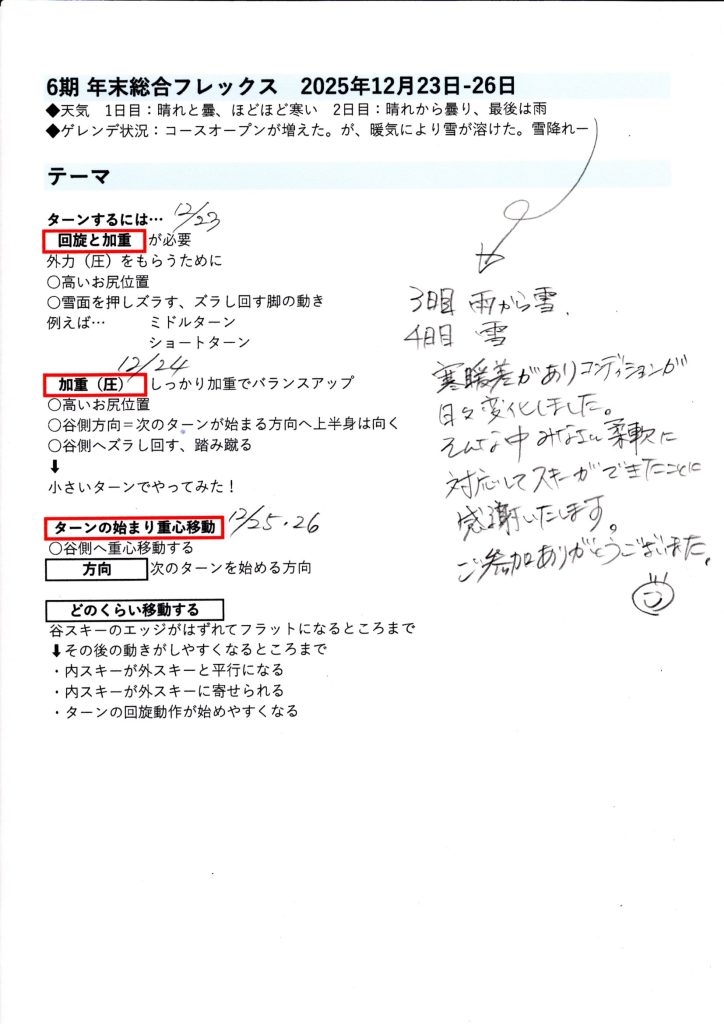 6期 年末総合フレックス　2025年12月23日-26日
◆天気　1日目：晴れと曇、ほどほど寒い　2日目：晴れから曇り、最後は雨
◆ゲレンデ状況：コースオープンが増えた。が、暖気により雪が溶けた。雪降れー
テーマ
ターンするには… 12/23
回旋と加重 が必要
外力（圧）をもらうために
○高いお尻位置
○雪面を押しズラす、ズラし回す脚の動き
例えば…　ミドルターン
ショートターン
12/24
加重（圧） しっかり加重でバランスアップ
○高いお尻位置
○谷側方向＝次のターンが始まる方向へ上半身は向く
○谷側へズラし回す、踏み蹴る
⬇
小さいターンでやってみた！
ターンの始まり重心移動 12/25・26
○谷側へ重心移動する
方向 次のターンを始める方向
どのくらい移動する
谷スキーのエッジがはずれてフラットになるところまで
⬇その後の動きがしやすくなるところまで
・内スキーが外スキーと平行になる
・内スキーが外スキーに寄せられる
・ターンの回旋動作が始めやすくなる
3日目 雨から雪.
4日目 雪
寒暖差がありコンディションが
日々変化しました。
そんな中 みなさい柔軟に
対応してスキーができたことに
感謝いたします。
ご参加ありがとうございました。